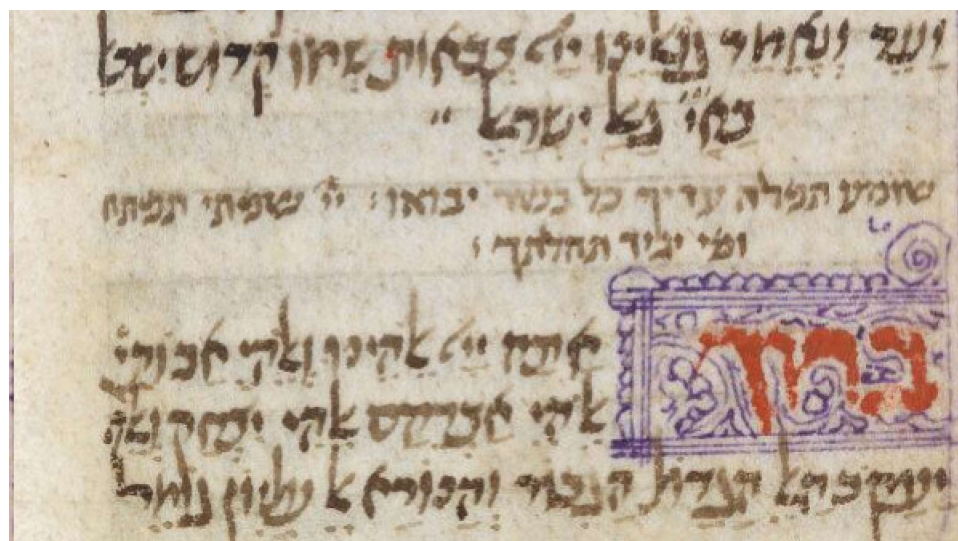 ועד ונאמר גואלינו ייי צבאות שמו קדוש ישר
בא״י גאל ישראל
שומע תפלה עדיך כל בשר יבואו: יי שפתי תפתח
ופי יגיד תהלתך:
ברוך אתה ייי אלקינו ואלקי אבותי
אלקי אברהם אלקי יצחק ואלקי
יעקב האל הגדול הגבור והנורא אל עליון גומל